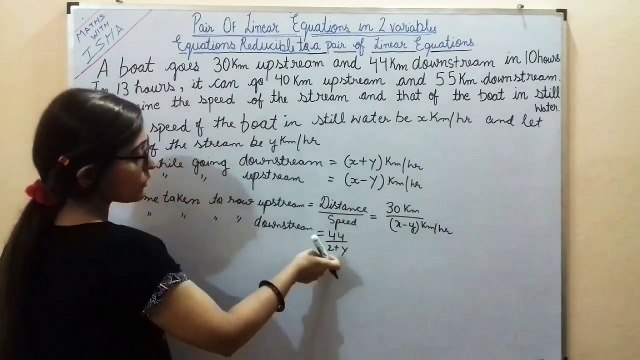 MATHS
WITH
ISHA
Pair Of Linear Equations in 2 variables
Equations Reducible to a pair of Linear Equations
A boat goes 30 Km upstream and 44 Km downstream in 10 hours
In 13 hours, it can go 40 Km upstream and 55 Km downstream.
ine the speed of the stream and that of the boat in still
water.
speed of the boat in still water be x Km/hr and let
of the stream be y Km/hr
while going downstream = (x+y) Km/hr
" " upstream = (x-y) Km/hr
me taken to row upstream = Distance / Speed = 30 Km / (x-y) Km/hr
" " " " downstream = 44 / x+y